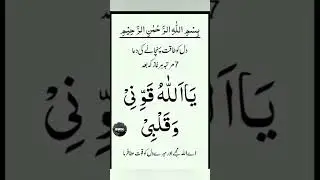 بِسْمِ اللهِ الرَّحْمٰنِ الرَّحِيْمِ
دل کو طاقت پہنچانے کی دعا
7 مرتبہ ہر نماز کے بعد
يَا اَللّٰهُ قَوِّنِيْ
وَقَلْبِيْ
اے اللہ مجھے اور میرے دل کو قوت عطا فرما